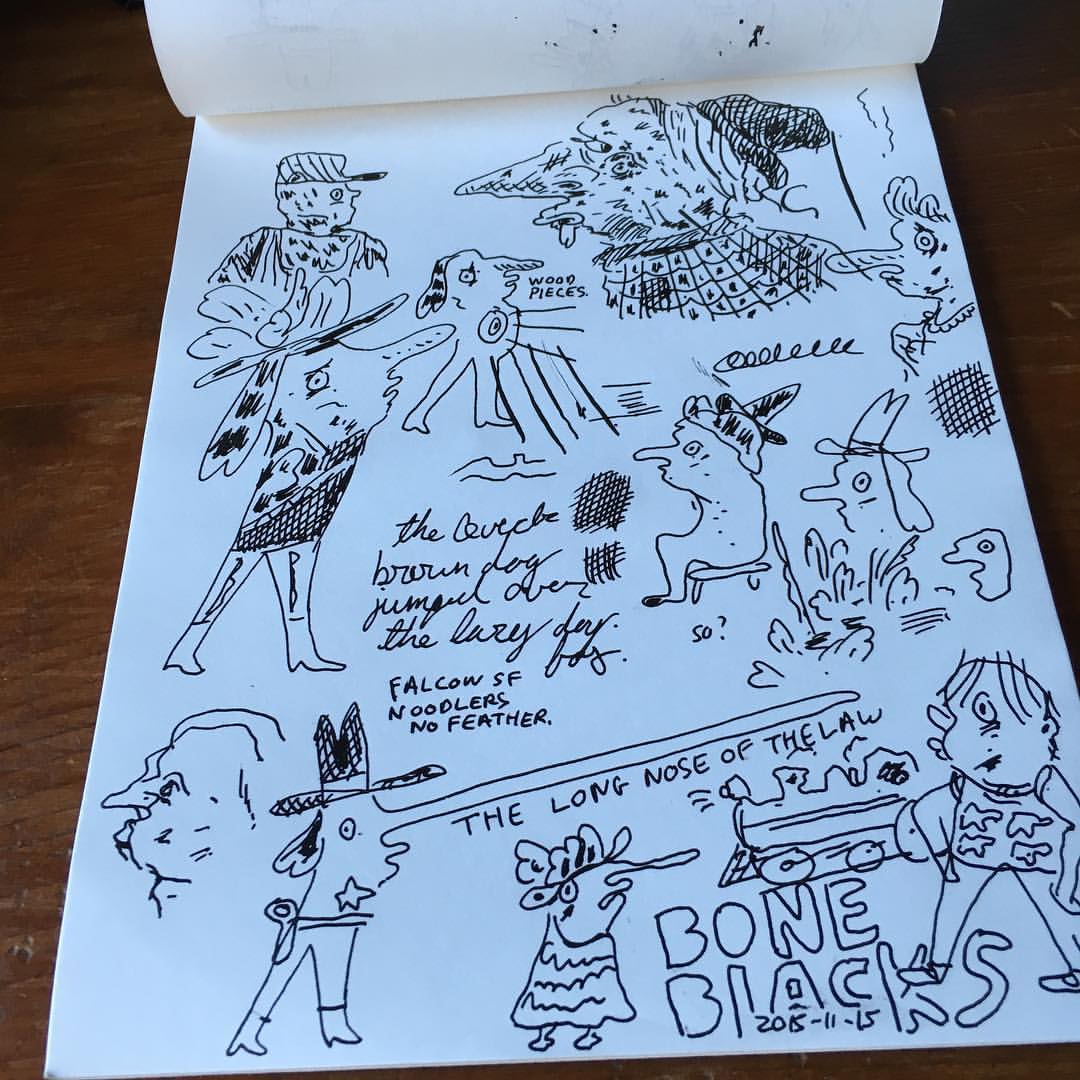 WOOD
PIECES.
the
brown dog
jumped over
the lazy dog.
dog.
SO?
FALCON SF
NOODLERS
NO FEATHER.
THE LONG NOSE OF THE LAW
BONE
BLACKS
2015-11-15